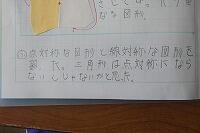 な図形。
点対称な図形と線対称な図形を
た。三角形は点対称になら
ないんじゃないかと思た。